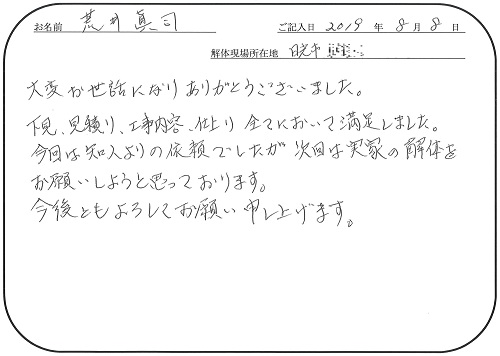 お名前 荒井 眞司 ご記入日 2019 年 8 月 8 日
解体現場所在地 日光市
大変お世話になりありがとうございました。
下見、見積り、工事内容、仕上り 全てにおいて満足しました。
今回は知人よりの依頼でしたが 次回は実家の解体を
お願いしようと思っております。
今後ともよろしくお願い申し上げます。